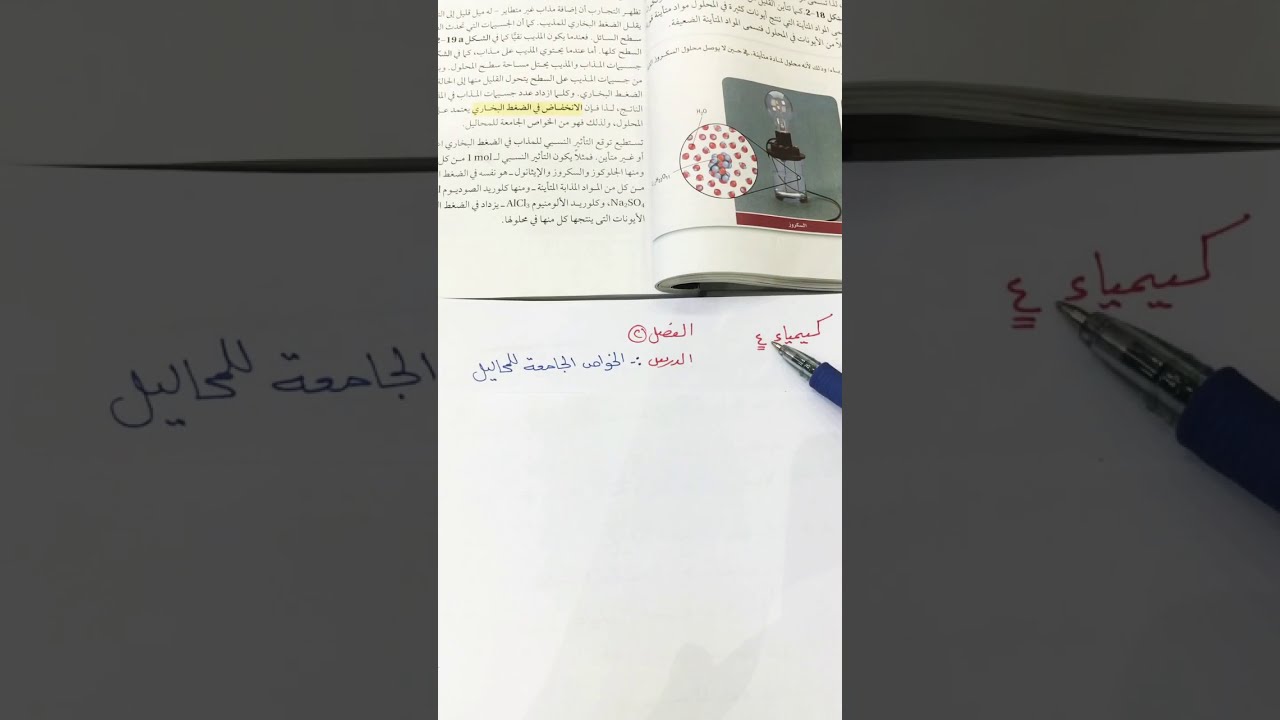 تظهر التجارب أن إضافة مذاب غير متطاير – له ميل قليل إلى
يقلل الضغط البخاري للمذيب. كما أن الجسيمات التي تحدث
سطح السائل. فعندما يكون المذيب نقيًّا كما في الشكل 2-19a
السطح كلها. أما عندما يحتوي المذيب على مذاب، كما في
جسيمات المذاب والمذيب يحتل مساحة سطح المحلول.
من جسيمات المذيب على السطح يتحول القليل منها إلى
الضغط البخاري. وكلما ازداد عدد جسيمات المذاب في
الناتج، لذا فإن الانخفاض في الضغط البخاري يعتمد
المحلول، ولذلك فهو من الخواص الجامعة للمحاليل.
تستطيع توقع التأثير النسبي للمذاب في الضغط البخاري
أو غير متأين. فمثلاً يكون التأثير النسبي لـ 1 mol من كل
ومنها الجلوكوز والسكروز والإيثانول – هو نفسه في الضغط
من كل من المواد المذابة المتأينة – ومنها كلوريد الصوديوم
Na₂SO₄، وكلوريد الألومنيوم AlCl₃ – يزداد في الضغط
الأيونات التي ينتجها كل منها في محلولها.
شكل 18-2. كما تأين القليل
المواد المتأينة التي تنتج أيونات كثيرة في المحلول مواد متأينة
من الأيونات في المحلول فتسمى المواد المتأينة الضعيفة
وذلك لأنه محلول لمادة متأينة. في حين لا يوصل محلول السكروز
H₂O
السكروز
كيمياء ٤
الفصل ٢
الدرس :- الخواص الجامعة للمحاليل
كيمياء ٤
الجامعة للمحاليل